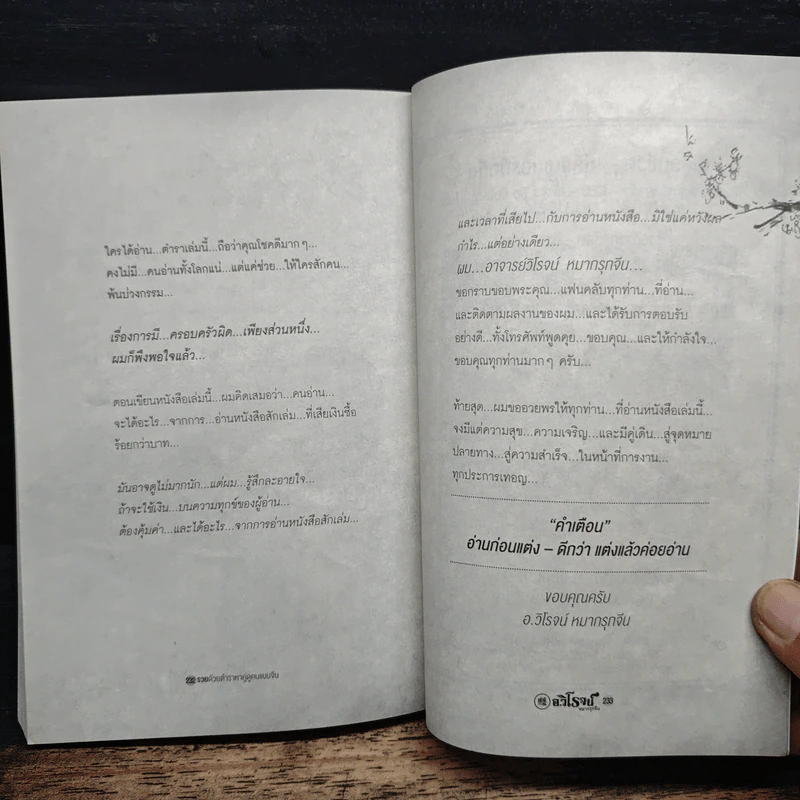 ใครได้อ่าน...ตำราเล่มนี้...ถือว่าคุณโชคดีมาก ๆ...
คงไม่มี...คนอ่านทั้งโลกแน่...แต่แค่ช่วย...ให้ใครสักคน...
พ้นบ่วงกรรม...
เรื่องการมี...ครอบครัวผิด...เพียงส่วนหนึ่ง...
ผมก็พึงพอใจแล้ว...
ตอนเขียนหนังสือเล่มนี้...ผมคิดเสมอว่า...คนอ่าน...
จะได้อะไร...จากการ...อ่านหนังสือสักเล่ม...ที่เสียเงินซื้อ
ร้อยกว่าบาท...
มันอาจดูไม่มากนัก...แต่ผม...รู้สึกละอายใจ...
ถ้าจะใช้เงิน...บนความทุกข์ของผู้อ่าน...
ต้องคุ้มค่า...และได้อะไร...จากการอ่านหนังสือสักเล่ม...
232 รวยด้วยตำราหาคู่ดูคนแบบจีน
และเวลาที่เสียไป...กับการอ่านหนังสือ...มิใช่แค่หวังผล
กำไร...แต่อย่างเดียว...
ผม...อาจารย์วิโรจน์ หมากรุกจีน...
ขอกราบขอบพระคุณ...แฟนคลับทุกท่าน...ที่อ่าน...
และติดตามผลงานของผม...และได้รับการตอบรับ
อย่างดี...ทั้งโทรศัพท์พูดคุย...ขอบคุณ...และให้กำลังใจ...
ขอบคุณทุกท่านมาก ๆ ครับ...
ท้ายสุด...ผมขออวยพรให้ทุกท่าน...ที่อ่านหนังสือเล่มนี้...
จงมีแต่ความสุข...ความเจริญ...และมีคู่เดิน...สู่จุดหมาย
ปลายทาง...สู่ความสำเร็จ...ในหน้าที่การงาน...
ทุกประการเทอญ...
“คำเตือน”
อ่านก่อนแต่ง – ดีกว่า แต่งแล้วค่อยอ่าน
ขอบคุณครับ
อ.วิโรจน์ หมากรุกจีน
อ.วิโรจน์ 233
หมากรุกจีน